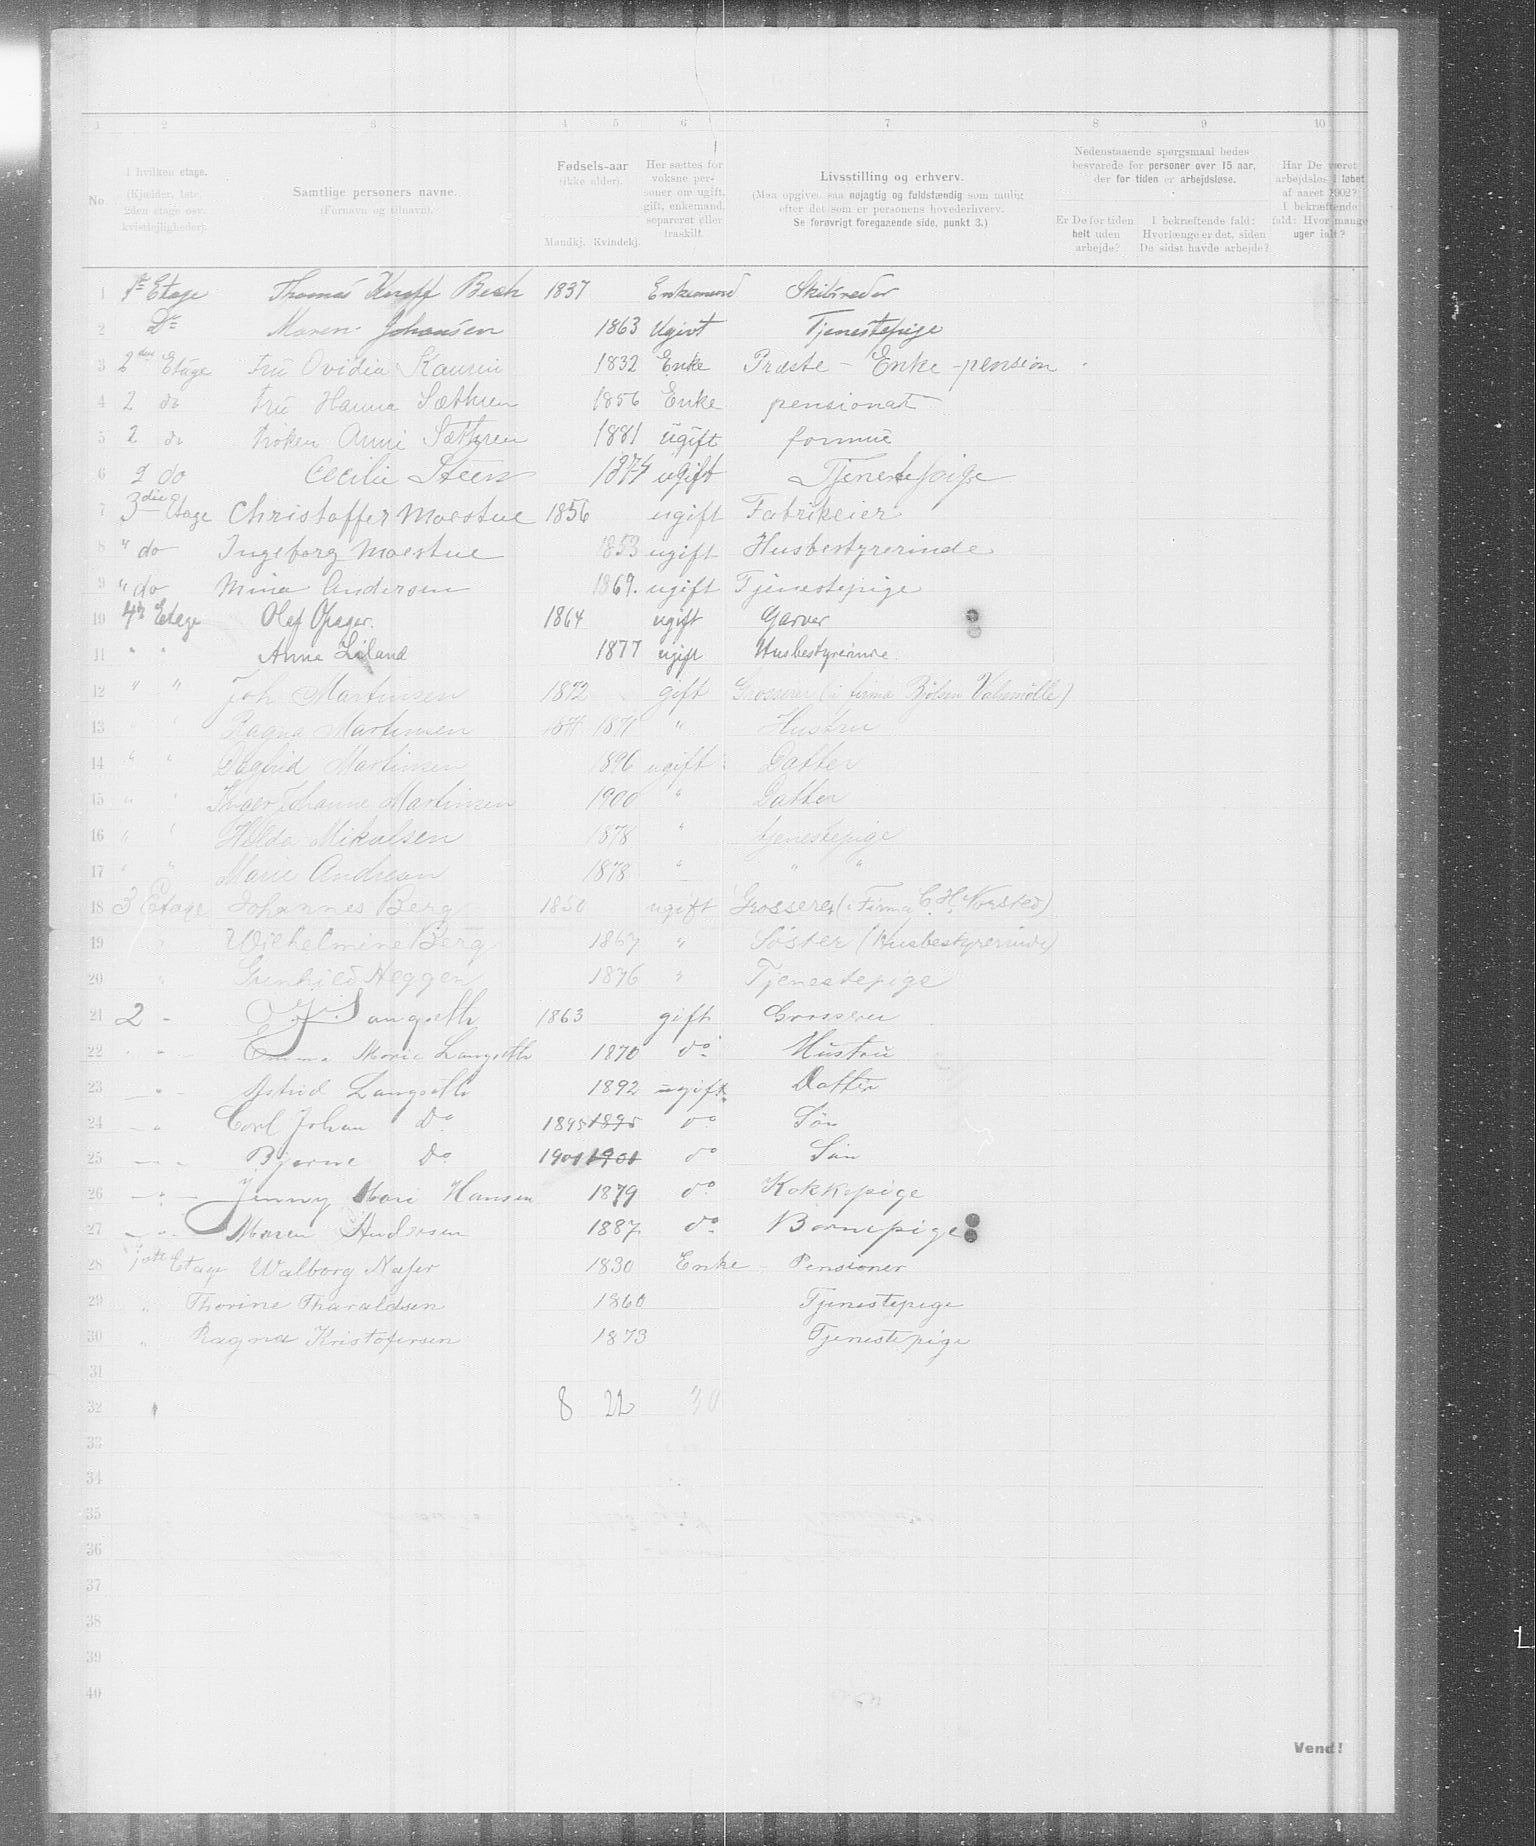 1 2 3 4 5 6 7 8 9 10
No.
I hvilken etage.
(Kjælder, 1ste, 2den etage osv. kvistlejligheder).
Samtlige personers navne.
(Fornavn og tilnavn).
Fødsels-aar
(ikke alder).
Mandkj. Kvindekj.
Her sættes for voksne personer om ugift, gift, enkemand, separeret eller fraskilt.
Livsstilling og erhverv.
(Maa opgives saa nøjagtig og fuldstændig som mulig efter det som er personens hovederhverv.
Se forøvrigt foregaaende side, punkt 3.)
Nedenstaaende spørgsmaal bedes besvarede for personer over 15 aar, der for tiden er arbejdsløse.
Er De for tiden helt uden arbejde?
I bekræftende fald: Hvorlænge er det, siden De sidst havde arbejde?
Har De været arbejdsløs i løbet af aaret 1902? I bekræftende fald: Hvor mange uger ialt?
1 1ste Etage Thomas Knoff Bech 1837 Enkemand Skibsreder
2 Do Maren Johansen 1863 Ugivt Tjenestepige
3 2den Etage Fru Ovidia Kaurin 1832 Enke Præste - Enke - pension
4 2 do Fru Hanna Sæthren 1856 Enke pensionat
5 2 do Frøken Anni Sæthren 1881 ugift formue
6 2 do Cecilie Steen 1874 ugift Tjenestepige
7 3die Etage Christoffer Moestue 1856 ugift Fabrikeier
8 " do Ingeborg Moestue 1853 ugift Husbestyrerinde
9 " do Mina Andersen 1869. ugift Tjenestepige
10 4de Etage Olaf Opager. 1864 ugift Garver
11 " " Anne Liland 1877 ugift Husbestyrerinde.
12 " " Joh. Martinsen 1872 gift Grosserer (i firma Bjølsen Valsemølle)
13 " " Ragna Martinsen 1871 " Hustru
14 " " Dagfrid Martinsen 1896 ugift Datter
15 " " Inger Johanne Martinsen 1900 " Datter
16 " " Hilda Mikalsen 1878 " tjenestepige
17 " " Marie Andrean 1878 " " "
18 3 Etage Johannes Berg 1850 ugift Grosserer (i Firma C. H. Norsted)
19 " Wilhelmine Berg 1867 " Søster (Husbestyrerinde)
20 " Gunhild Heggen 1876 " Tjenestepige
21 2 - O. J. Langseth 1863 gift Grosserer
22 " " Emma Marie Langseth 1870 do Hustru
23 - " - Astrid Langseth 1892 ugift Datter
24 - " Carl Johan Do 1895 1895 do Søn
25 - " - Bjarne Do 1901 1901 do Søn
26 - " - Jenny Mari Hansen 1879 do Kokkepige
27 - " - Maren Andersen 1887 do Barnepige
28 1ste Etage Walborg Naser 1830 Enke Pensioner
29 " Thorine Tharaldsen 1860 Tjenestepige
30 " Ragna Kristofersen 1873 Tjenestepige
31
32 8 22 30
33
34
35
36
37
38
39
40
Vend!